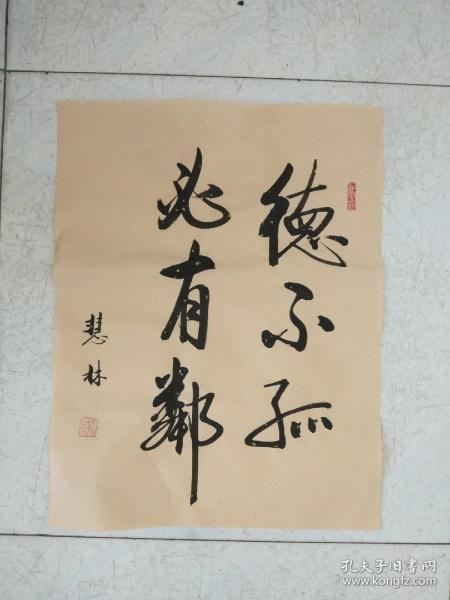 德不孤
必有鄰
慧林
孔夫子旧书网
www.kongfz.com